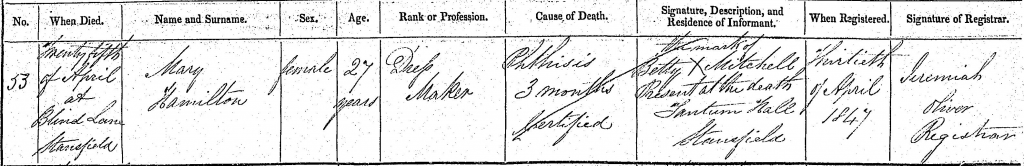 No. When Died. Name and Surname. Sex. Age. Rank or Profession. Cause of Death. Signature, Description, and Residence of Informant. When Registered. Signature of Registrar.
53
Twenty fifth
of April
at
Blind Lane
Stansfield
Mary
Hamilton
female
27
years
Dress
Maker
Phthisis
3 months
Certified
The mark of
Betty X Mitchell
Present at the death
Hall
Stansfield
Thirtieth
of April
1847
Jeremiah
Oliver
Registrar